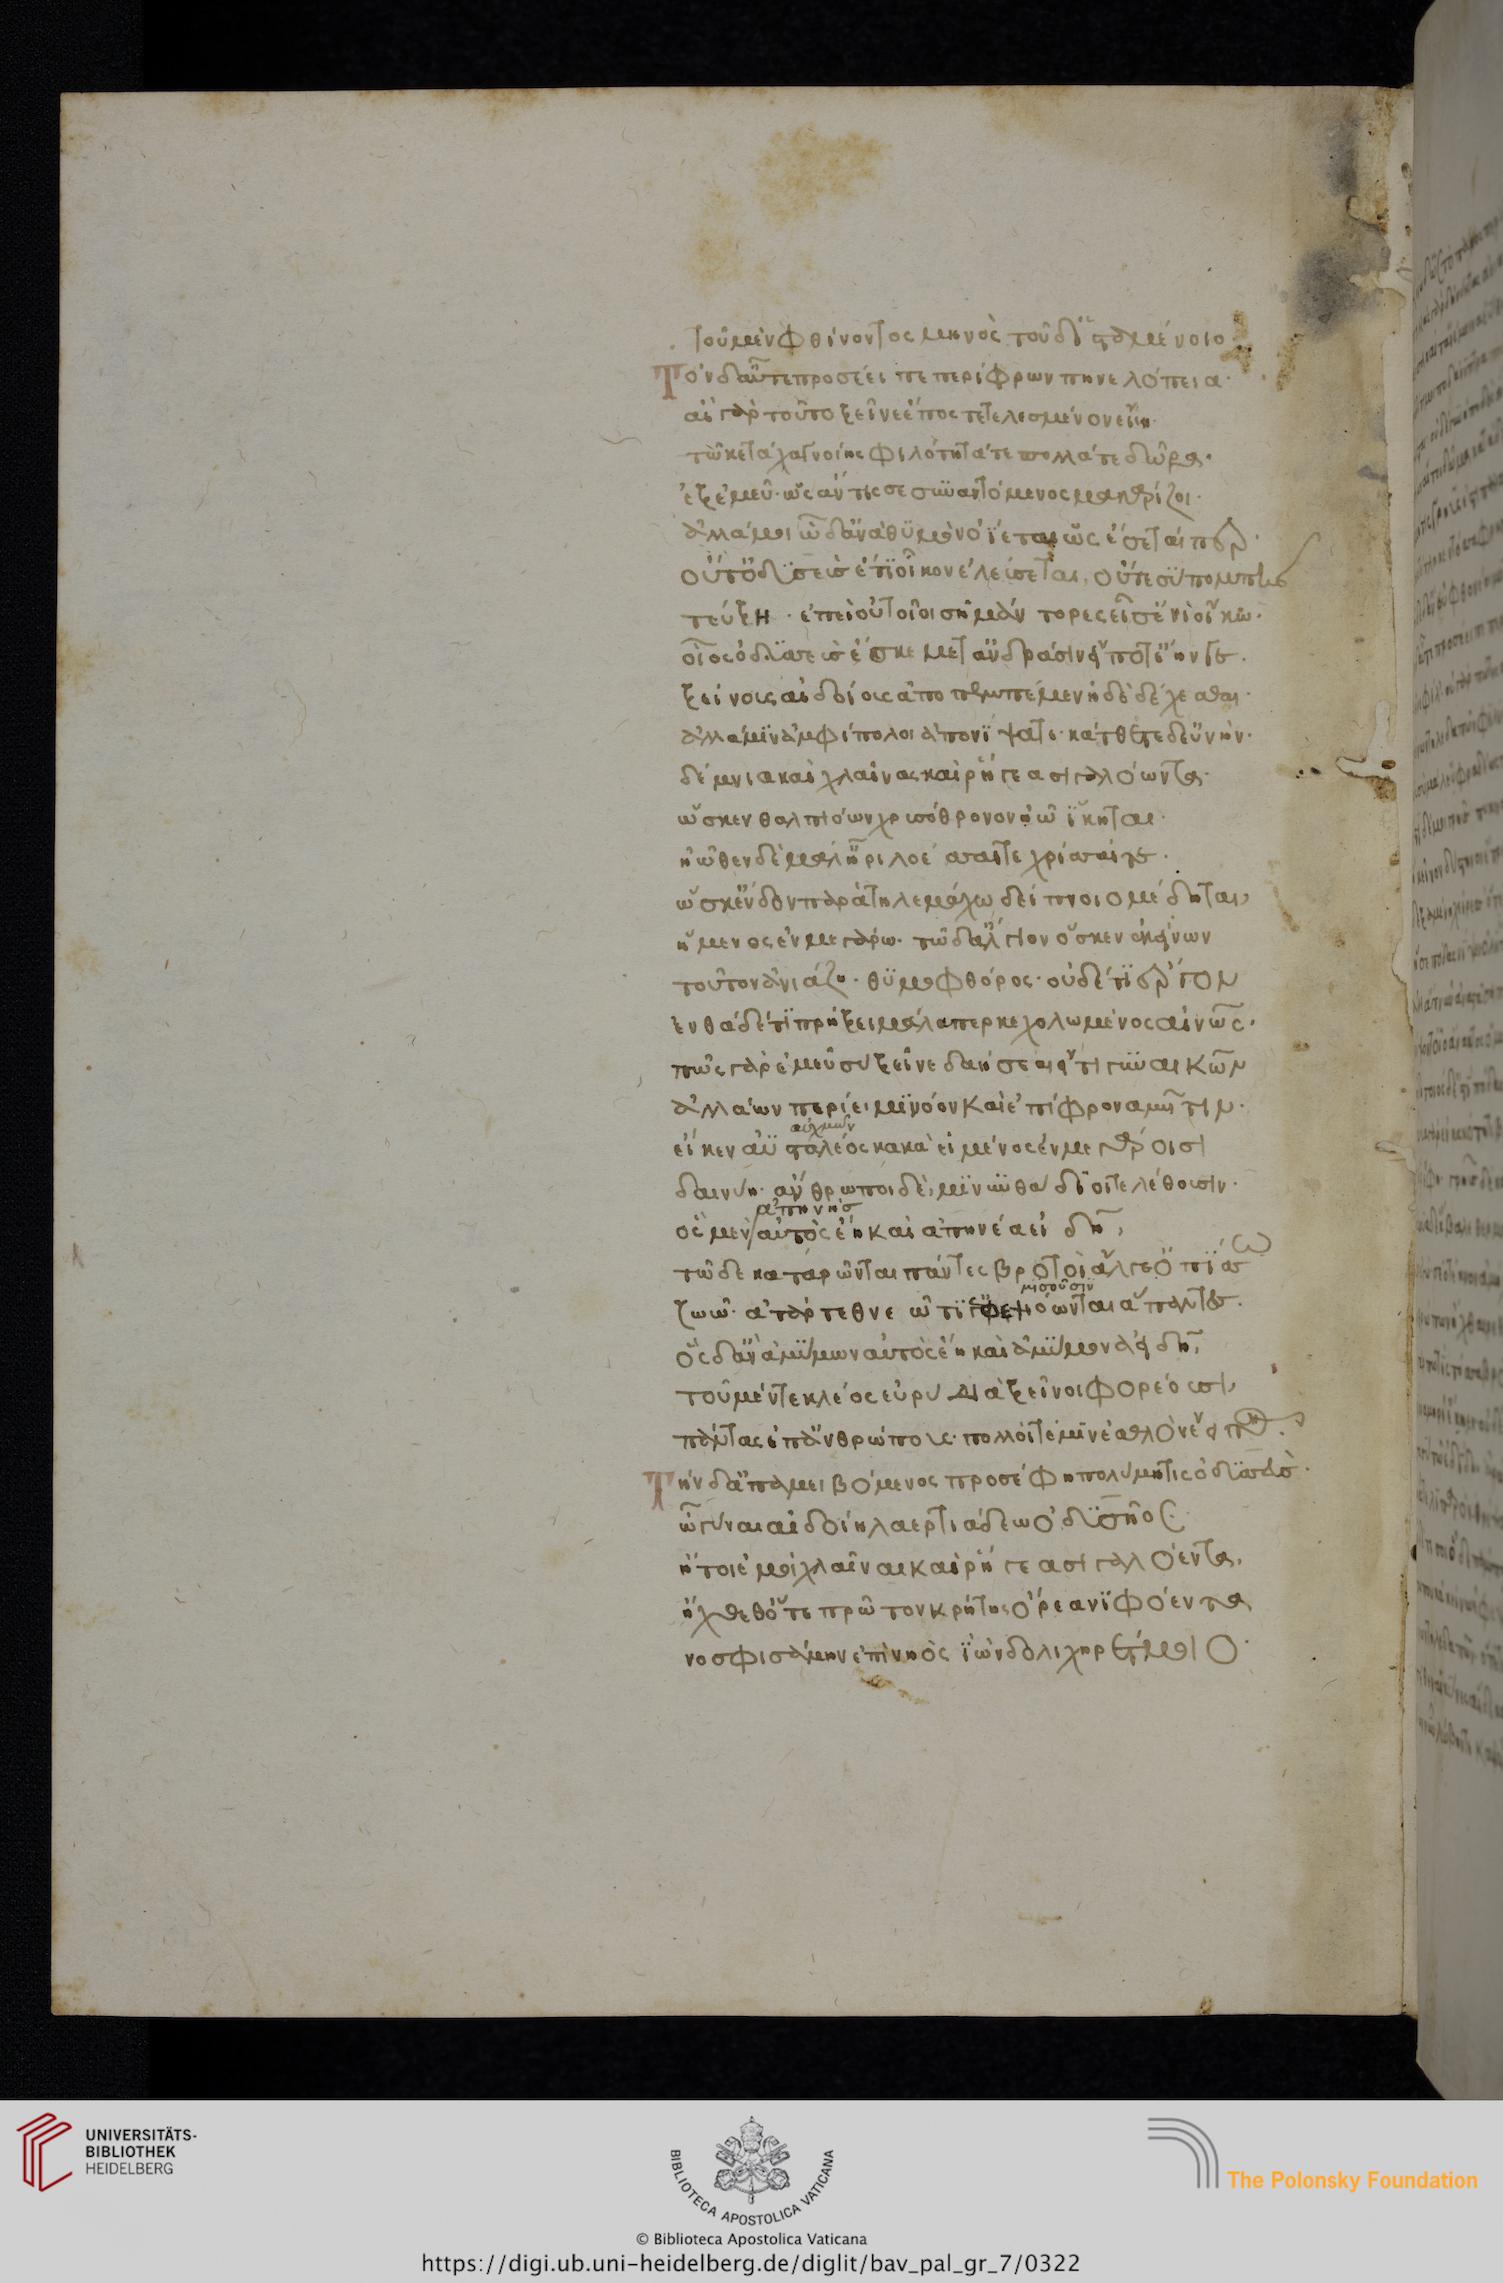 τοῦ μὲν φθίνοντος μηνὸς τοῦ δ' ἱσταμένοιο
Τὸν δ' αὖτε προσέειπε περίφρων πηνελόπεια·
αἲ γὰρ τοῦτο ξεῖνε ἔπος τετελεσμένον εἴη·
τῶ κε τάχα γνοίης φιλότητά τε πολλά τε δῶρα·
ἐξ ἐμεῦ· ὡς ἄν τίς σε συναντόμενος μακαρίζοι·
ἀλλά μοι ὧδ' ἀνὰ θυμὸν ὀΐεται ὡς ἔσεταί περ·
οὔτ' ὀδυσεὺς ἔτι οἶκον ἐλεύσεται, οὔτε σὺ πομπῆς
τεύξη· ἐπεὶ οὐ τοῖοι σημάντορες εἰσ' ἐνὶ οἴκω·
οἷος ὀδυσσεὺς ἔσκε μετ' ἀνδράσιν εἴποτ' ἔην γε·
ξείνους αἰδοίους ἀποπεμπέμεν ἠδὲ δέχεσθαι·
ἀλλά μιν ἀμφίπολοι ἀπονίψατε· κάτθετε δ' εὐνήν·
δέμνια καὶ χλαίνας καὶ ῥήγεα σιγαλόωντα·
ὥς κεν θαλπιόων χρυσόθρονον ἠῶ ἵκηται·
ἠῶθεν δὲ μάλ' ἦρι λοέσσαι τε χρίσαί τε·
ὥς κ' ἔνδον παρὰ τηλεμάχω δείπνοιο μέδηται,
ἥμενος ἐν μεγάρω· τῶ δ' ἄλγιον ὅς κεν ἐκείνων
τοῦτον ἀνιάζη· θυμοφθόρος· οὐδέ τι ἔργον
ἐνθάδ' ἔτι πρήξει μάλα περ κεχολωμένος αἰνῶς·
πῶς γὰρ ἐμεῦ σὺ ξεῖνε δαήσεαι εἴ τι γυναικῶν
ἀλλάων περίειμι νόον καὶ ἐπίφρονα μῆτιν·
αὐχμῶν
εἴ κεν ἀϋσταλέος κακὰ εἱμένος ἐν μεγάροισι
δαινύη· ἄνθρωποι δὲ μινυνθάδιοι τελέθουσιν·
ἀπηνὴς
ὃς μὲν αὐτὸς ἔη καὶ ἀπηνέα εἰδῆ,
τῶ δὲ καταρῶνται πάντες βροτοὶ ἄλγε' ὀπίσσω
μισοῦσιν
ζωῶ· ἀτὰρ τεθνεῶτι γ' ἐφεψιόωνται ἅπαντες·
ὃς δ' ἂν ἀμύμων αὐτὸς ἔη καὶ ἀμύμονα εἰδῆ,
τοῦ μέν τε κλέος εὐρὺ διὰ ξεῖνοι φορέουσι,
πάντας ἐπ' ἀνθρώπους· πολλοί τέ μιν ἐσθλὸν ἔειπον·
Τὴν δ' ἀπαμειβόμενος προσέφη πολύμητις ὀδυσσεύς·
ὦ γύναι αἰδοίη λαερτιάδεω ὀδυσῆος·
ἤτοι ἐμοὶ χλαῖναι καὶ ῥήγεα σιγαλόεντα,
ἤχθεθ' ὅτε πρῶτον κρήτης ὄρεα νιφόεντα
νοσφισάμην ἐπὶ νηὸς ἰὼν δολιχηρέτμοιο·
UNIVERSITÄTS-
BIBLIOTHEK
HEIDELBERG
BIBLIOTECA APOSTOLICA VATICANA
The Polonsky Foundation
© Biblioteca Apostolica Vaticana
https://digi.ub.uni-heidelberg.de/diglit/bav_pal_gr_7/0322